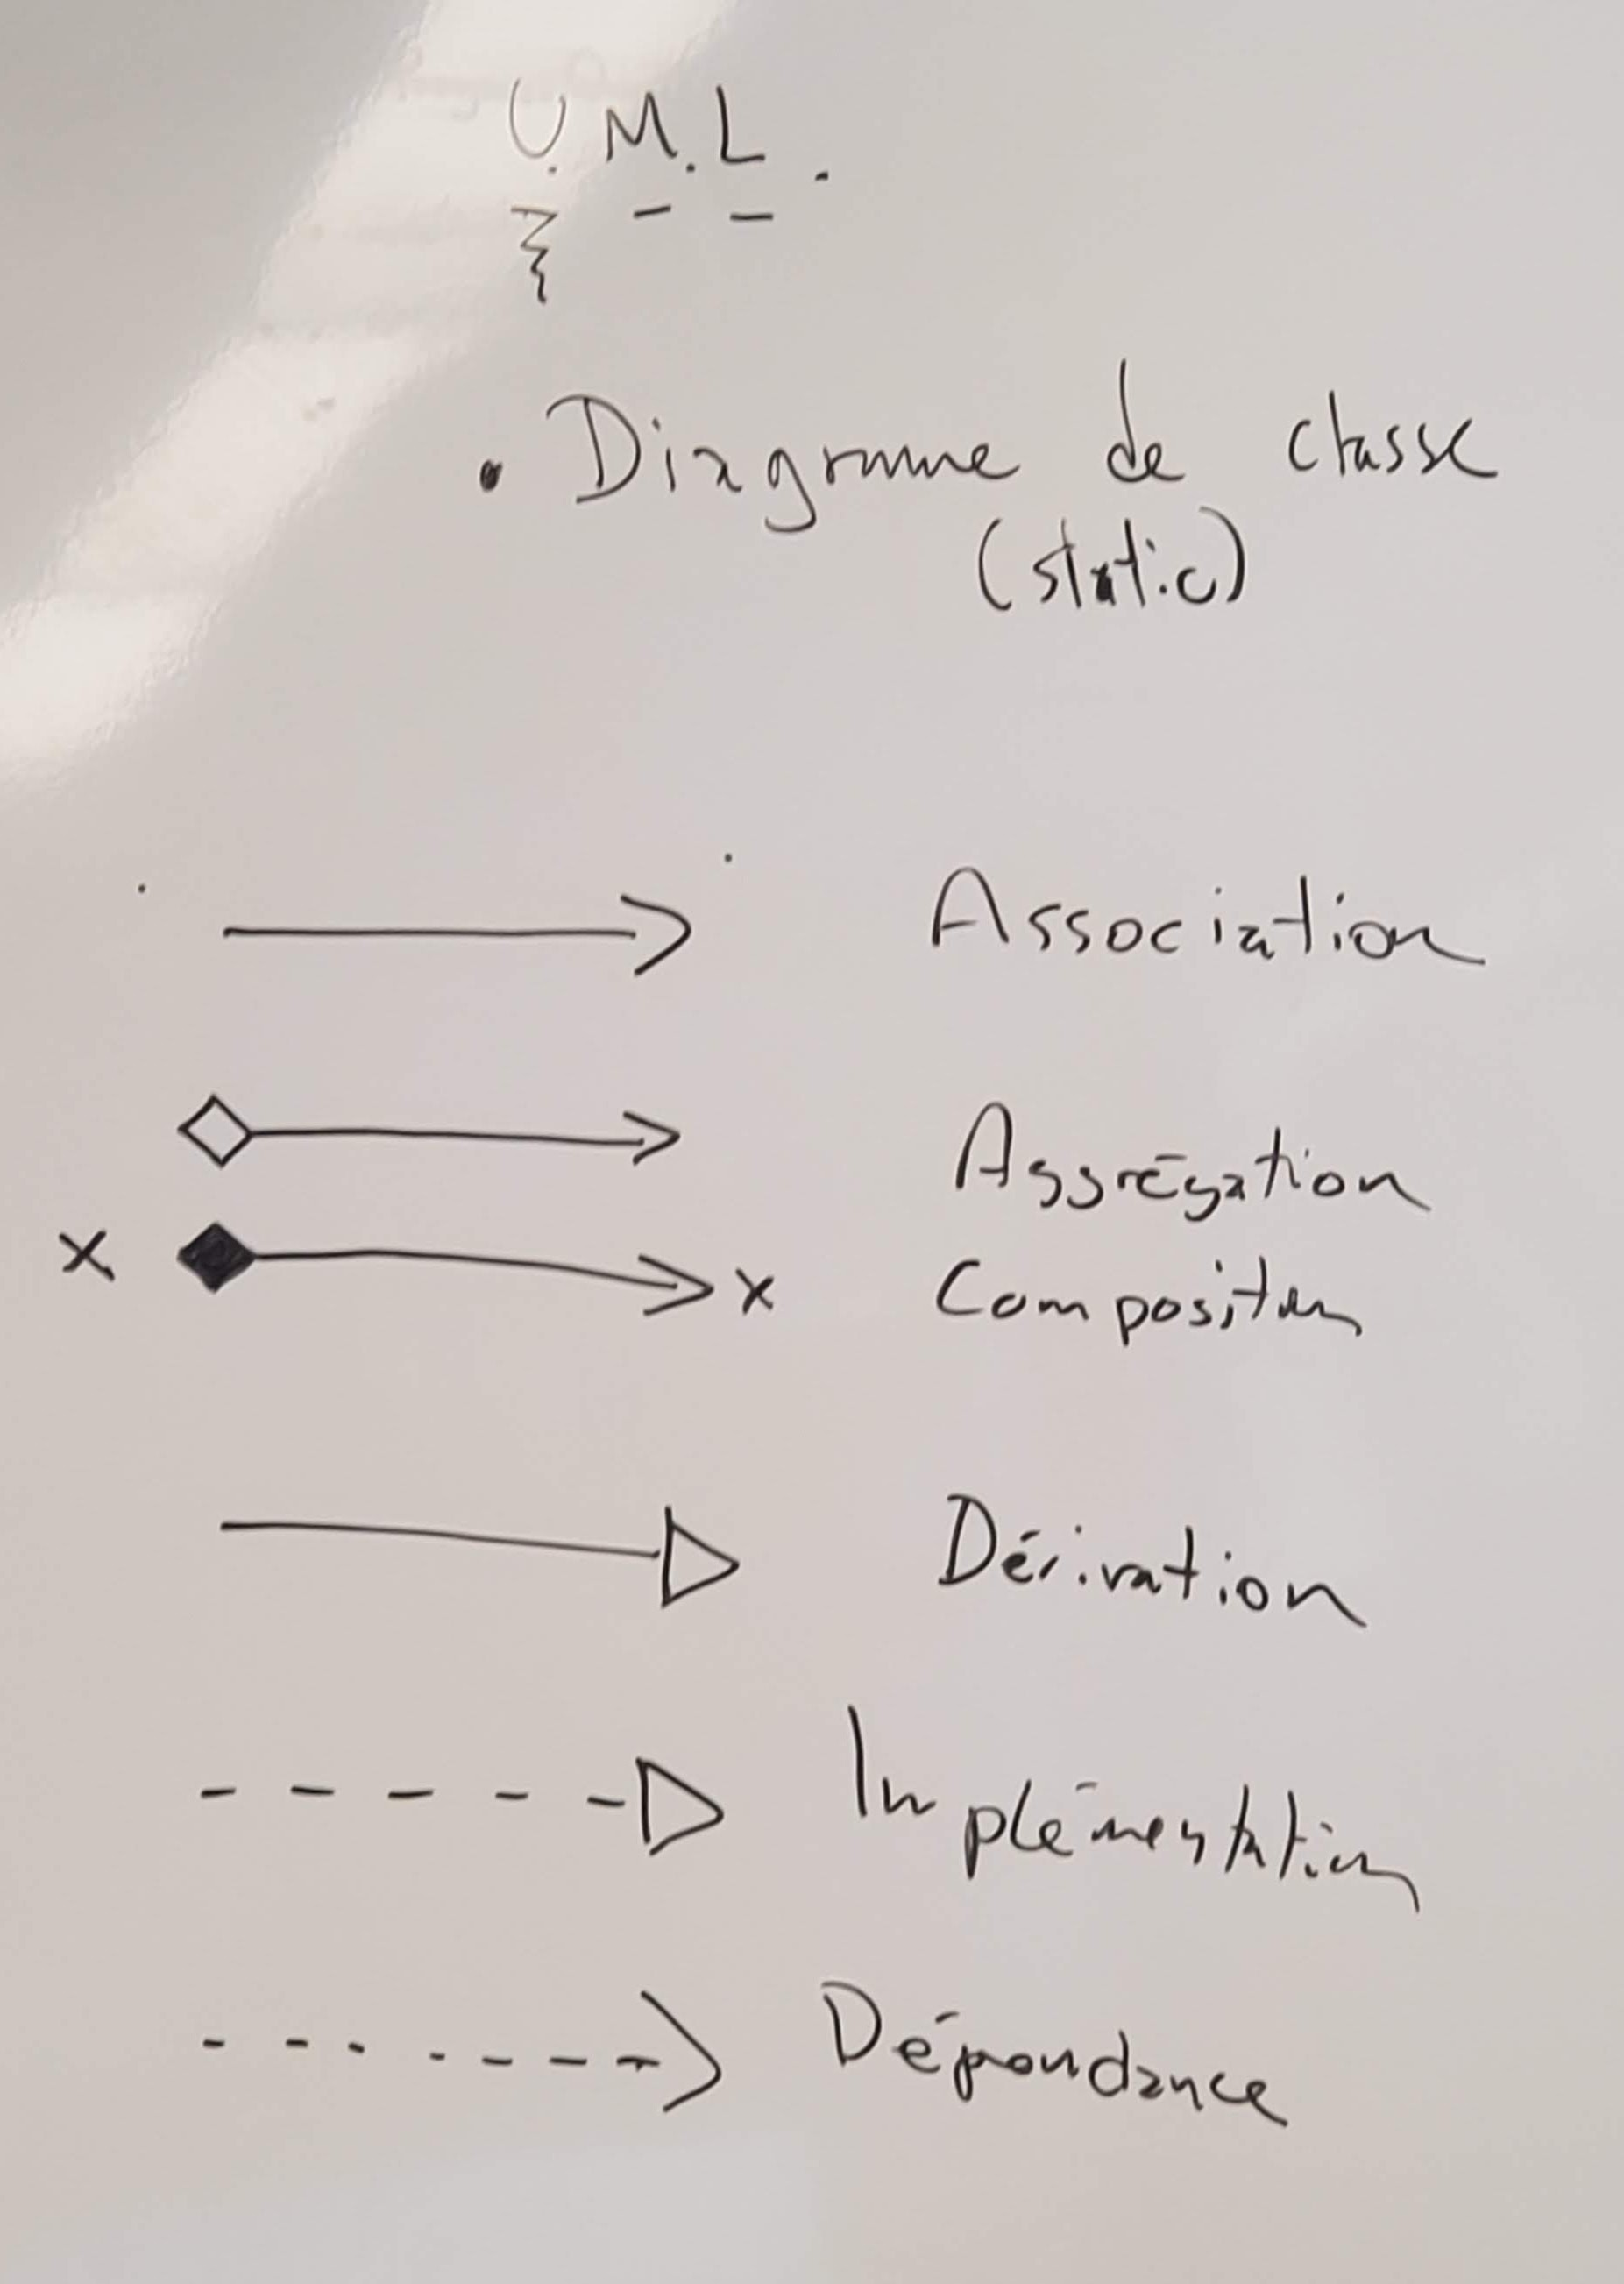 U.M.L.
• Diagramme de classe
(static)
Association
Aggrégation
x x Composition
Dérivation
Implémentation
Dépendance